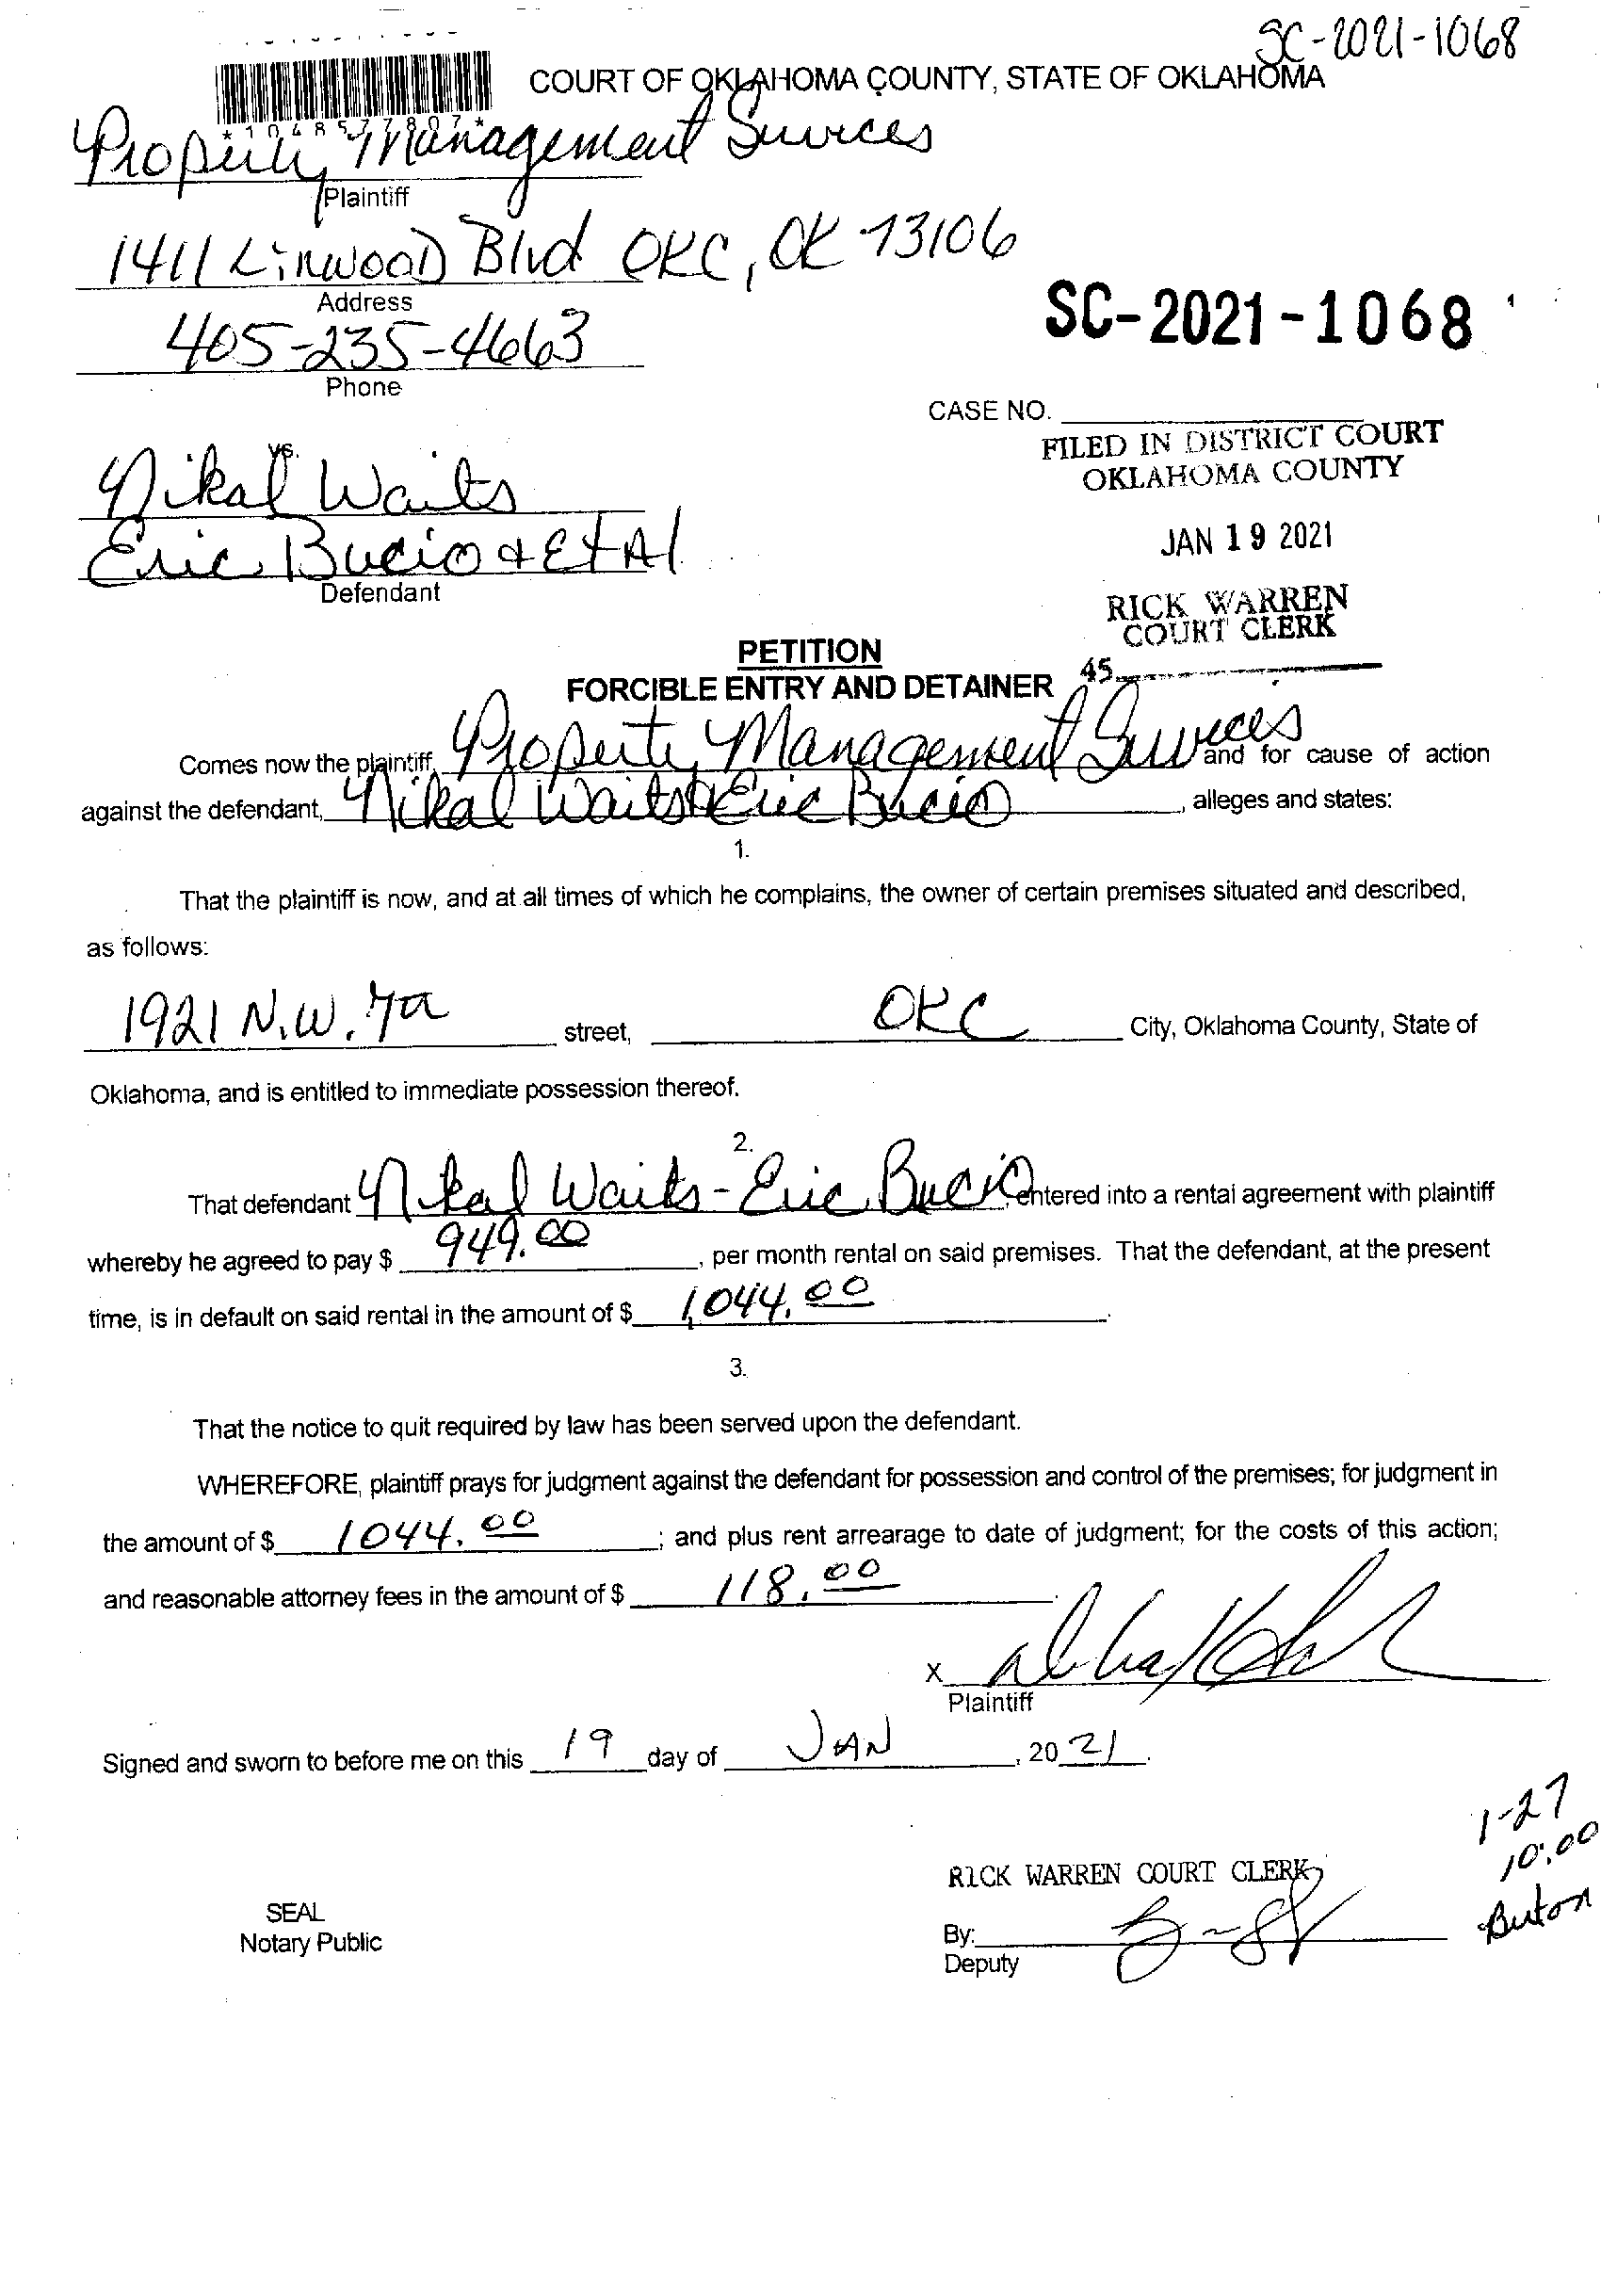 SC-2021-1068
COURT OF OKLAHOMA COUNTY, STATE OF OKLAHOMA
*1048577807*
Property Management Services
Plaintiff
1411 Linwood Blvd OKC, OK 73106
Address
405-235-4663
Phone
SC-2021-1068
CASE NO.
FILED IN DISTRICT COURT
OKLAHOMA COUNTY
JAN 19 2021
RICK WARREN
COURT CLERK
45
vs.
Nikal Waits
Eric Bucio & Et Al
Defendant
PETITION
FORCIBLE ENTRY AND DETAINER
Comes now the plaintiff, Property Management Services and for cause of action
against the defendant, Nikal Waits & Eric Bucio, alleges and states:
1.
That the plaintiff is now, and at all times of which he complains, the owner of certain premises situated and described,
as follows:
1921 N.W. street, OKC City, Oklahoma County, State of
Oklahoma, and is entitled to immediate possession thereof.
2.
That defendant Nikal Waits - Eric Bucio, entered into a rental agreement with plaintiff
whereby he agreed to pay $ 949.00, per month rental on said premises. That the defendant, at the present
time, is in default on said rental in the amount of $ 1,044.00.
3.
That the notice to quit required by law has been served upon the defendant.
WHEREFORE, plaintiff prays for judgment against the defendant for possession and control of the premises; for judgment in
the amount of $ 1044.00; and plus rent arrearage to date of judgment; for the costs of this action;
and reasonable attorney fees in the amount of $ 118.00.
X
Plaintiff
Signed and sworn to before me on this 19 day of JAN, 2021.
1-27
10:00
RICK WARREN COURT CLERK
SEAL
Notary Public
By:
Deputy